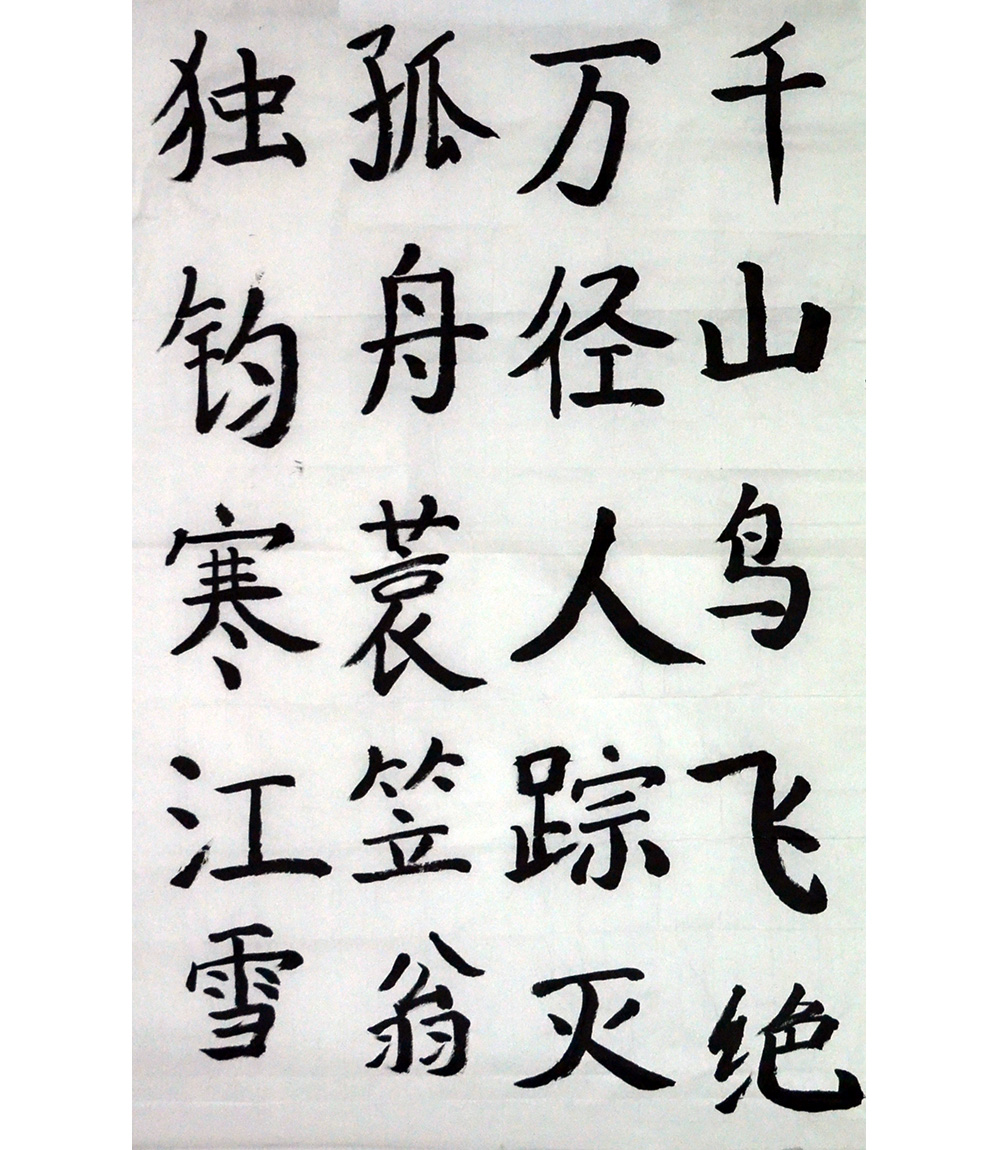 千山鸟飞绝
万径人踪灭
孤舟蓑笠翁
独钧寒江雪